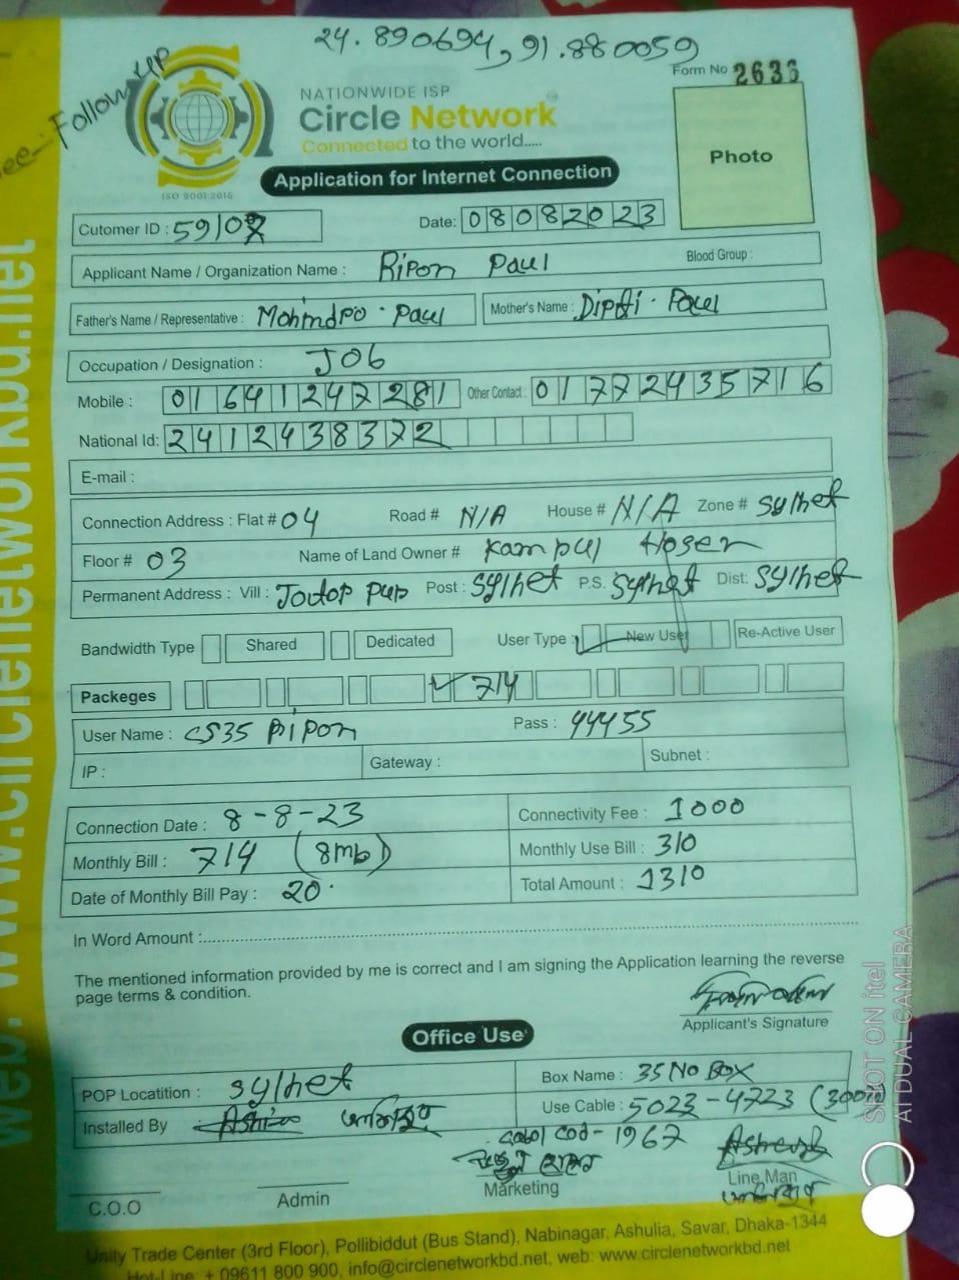 24.890694, 91.880059
Follow up
Form No 2636
NATIONWIDE ISP
Circle Network
Connected to the world.....
ISO 9001:2015
Photo
Application for Internet Connection
Cutomer ID : 59108
Date: 08082023
Applicant Name / Organization Name : Ripon Paul
Blood Group :
Father's Name / Representative : Mohindro Paul
Mother's Name : Dipti Paul
Occupation / Designation : JOB
Mobile : 01641247281 Other Contact : 01772435716
National Id: 2412438372
E-mail :
Connection Address : Flat # 04 Road # N/A House # N/A Zone # Sylhet
Floor # 03 Name of Land Owner # Kamrul Hosen
Permanent Address : Vill : Post : Sylhet P.S. Sylhet Dist: Sylhet
Bandwidth Type Shared Dedicated User Type : New User Re-Active User
Packeges 714
User Name : CS35 Ripon Pass : 44455
IP : Gateway : Subnet :
Connection Date : 8-8-23 Connectivity Fee : 1000
Monthly Bill : 714 (8mb) Monthly Use Bill : 310
Date of Monthly Bill Pay : 20 Total Amount : 1310
In Word Amount :
The mentioned information provided by me is correct and I am signing the Application learning the reverse
page terms & condition.
Applicant's Signature
Office Use
POP Locatition : Sylhet Box Name : 35 No BOX
Installed By Use Cable : 5023-4723
Cod- 1967
C.O.O Admin Marketing Line Man
Unity Trade Center (3rd Floor), Pollibiddut (Bus Stand), Nabinagar, Ashulia, Savar, Dhaka-1344
Hot-Line: + 09611 800 900, info@circlenetworkbd.net, web: www.circlenetworkbd.net
web: www.circlenetworkbd.net
SHOT ON itel
AI DUAL CAMERA